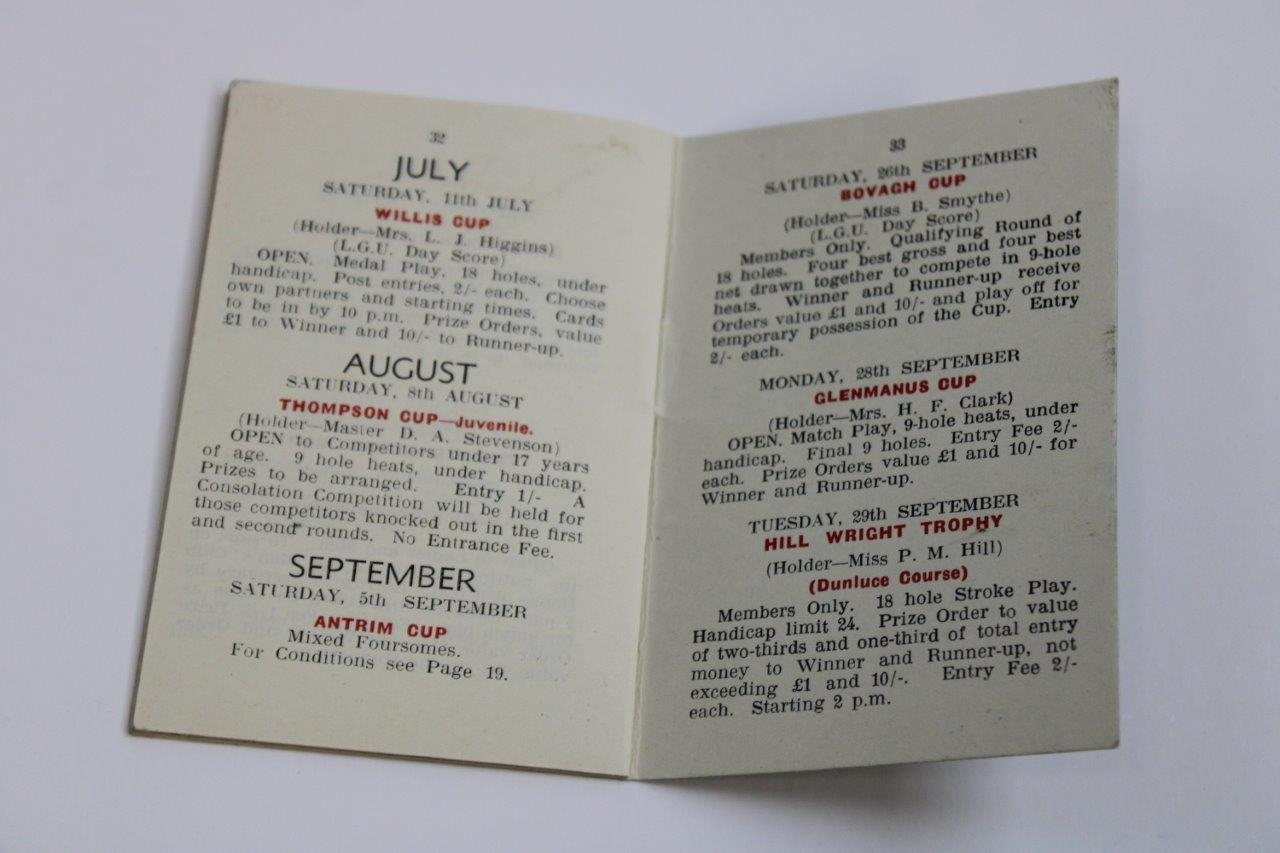 32
JULY
SATURDAY, 11th JULY
WILLIS CUP
(Holder—Mrs. L. J. Higgins)
(L.G.U. Day Score)
OPEN. Medal Play, 18 holes, under
handicap. Post entries, 2/- each. Choose
own partners and starting times. Cards
to be in by 10 p.m. Prize Orders, value
£1 to Winner and 10/- to Runner-up.
AUGUST
SATURDAY, 8th AUGUST
THOMPSON CUP—Juvenile.
(Holder—Master D. A. Stevenson)
OPEN to Competitors under 17 years
of age. 9 hole heats, under handicap.
Prizes to be arranged. Entry 1/- A
Consolation Competition will be held for
those competitors knocked out in the first
and second rounds. No Entrance Fee.
SEPTEMBER
SATURDAY, 5th SEPTEMBER
ANTRIM CUP
Mixed Foursomes.
For Conditions see Page 19.
33
SATURDAY, 26th SEPTEMBER
BOVAGH CUP
(Holder—Miss B. Smythe)
(L.G.U. Day Score)
Members Only. Qualifying Round of
18 holes. Four best gross and four best
net drawn together to compete in 9-hole
heats. Winner and Runner-up receive
Orders value £1 and 10/- and play off for
temporary possession of the Cup. Entry
2/- each.
MONDAY, 28th SEPTEMBER
GLENMANUS CUP
(Holder—Mrs. H. F. Clark)
OPEN. Match Play, 9-hole heats, under
handicap. Final 9 holes. Entry Fee 2/-
each. Prize Orders value £1 and 10/- for
Winner and Runner-up.
TUESDAY, 29th SEPTEMBER
HILL WRIGHT TROPHY
(Holder—Miss P. M. Hill)
(Dunluce Course)
Members Only. 18 hole Stroke Play.
Handicap limit 24. Prize Order to value
of two-thirds and one-third of total entry
money to Winner and Runner-up, not
exceeding £1 and 10/-. Entry Fee 2/-
each. Starting 2 p.m.